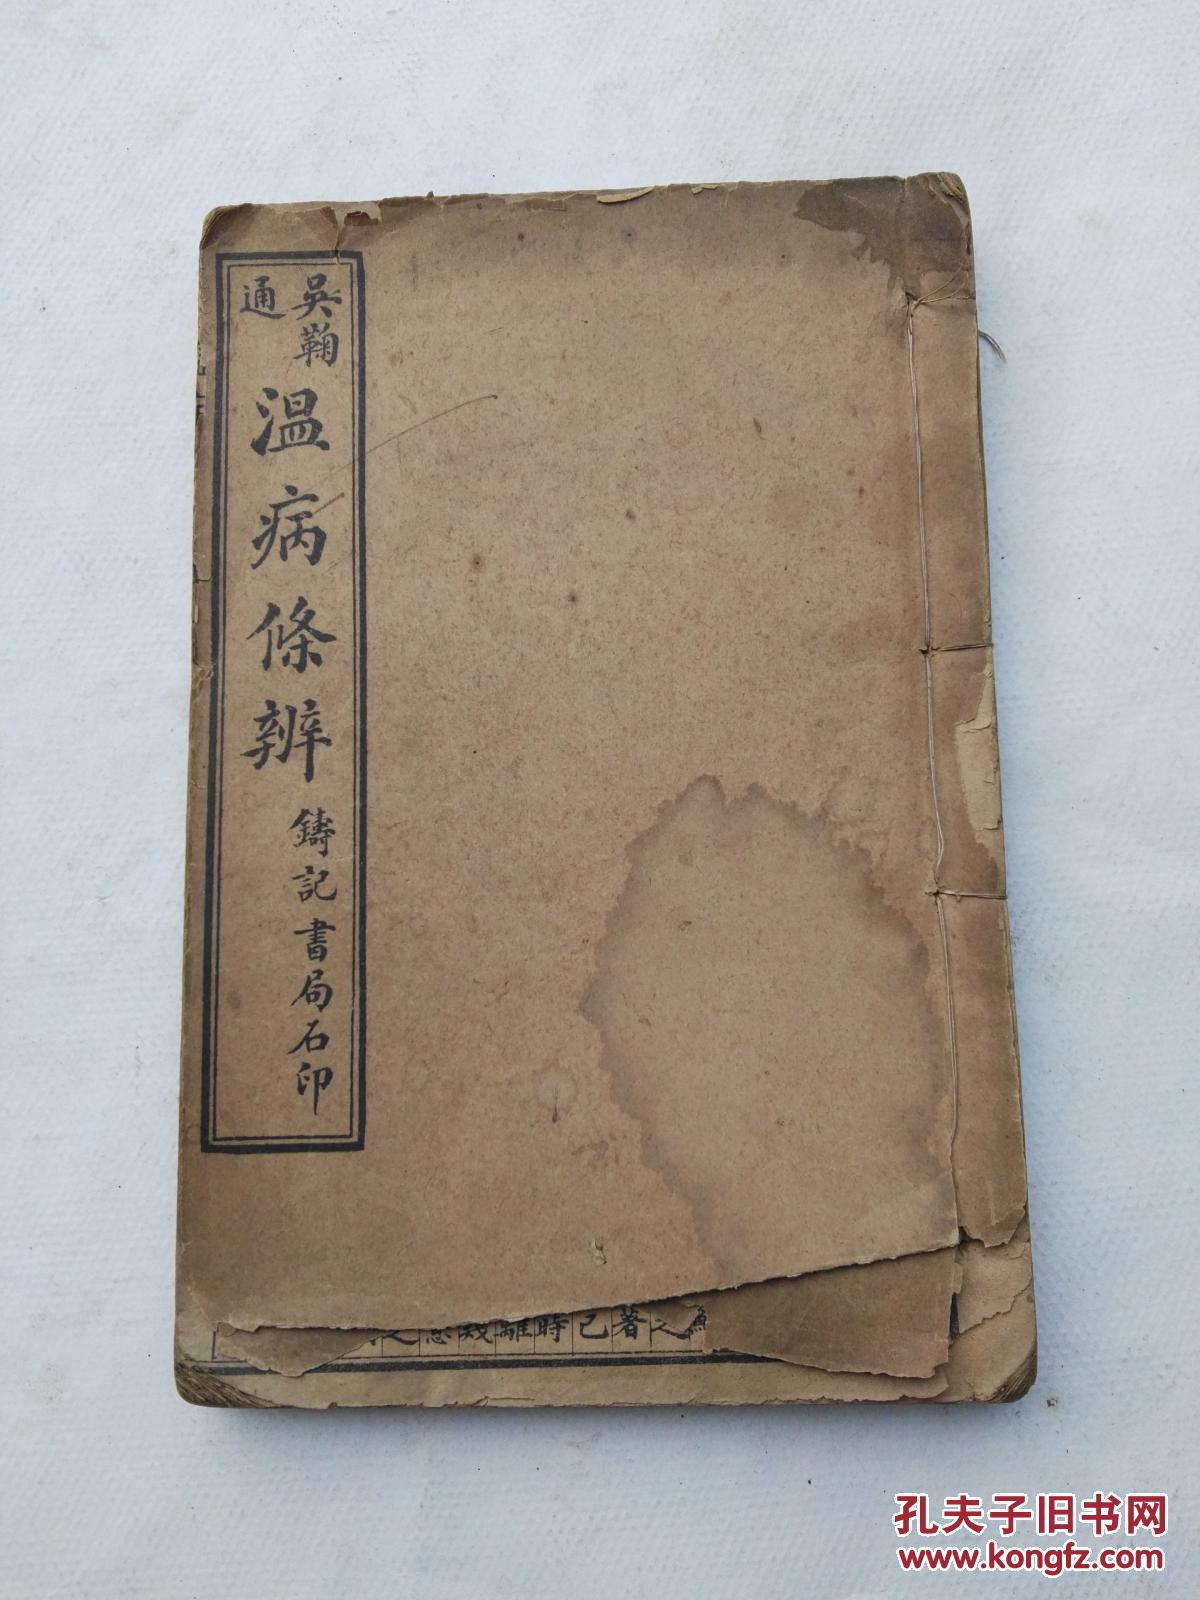 吳鞠
通
溫病條辨
鑄記書局石印
之
著
已
時
離
孔夫子旧书网
www.kongfz.com